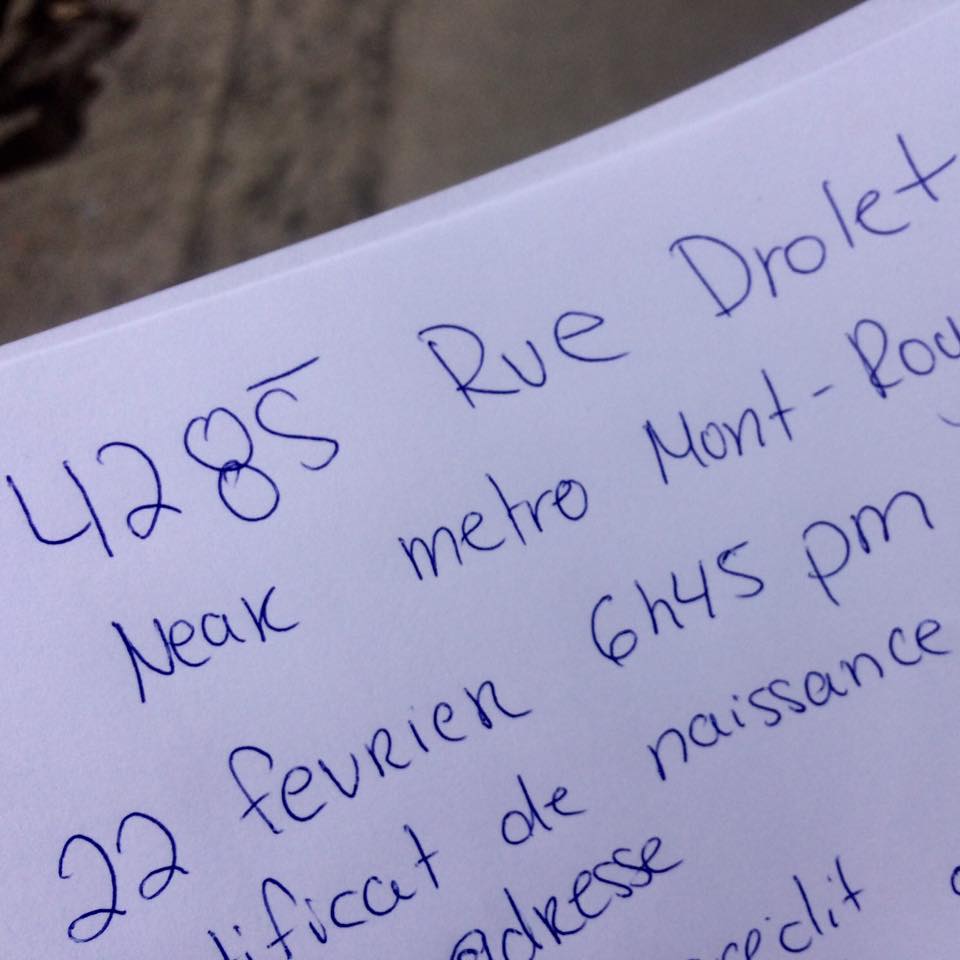 4285 Rue Drolet
Near metro Mont-Roy
22 fevrier 6h45 pm
tificat de naissance
adresse
credit